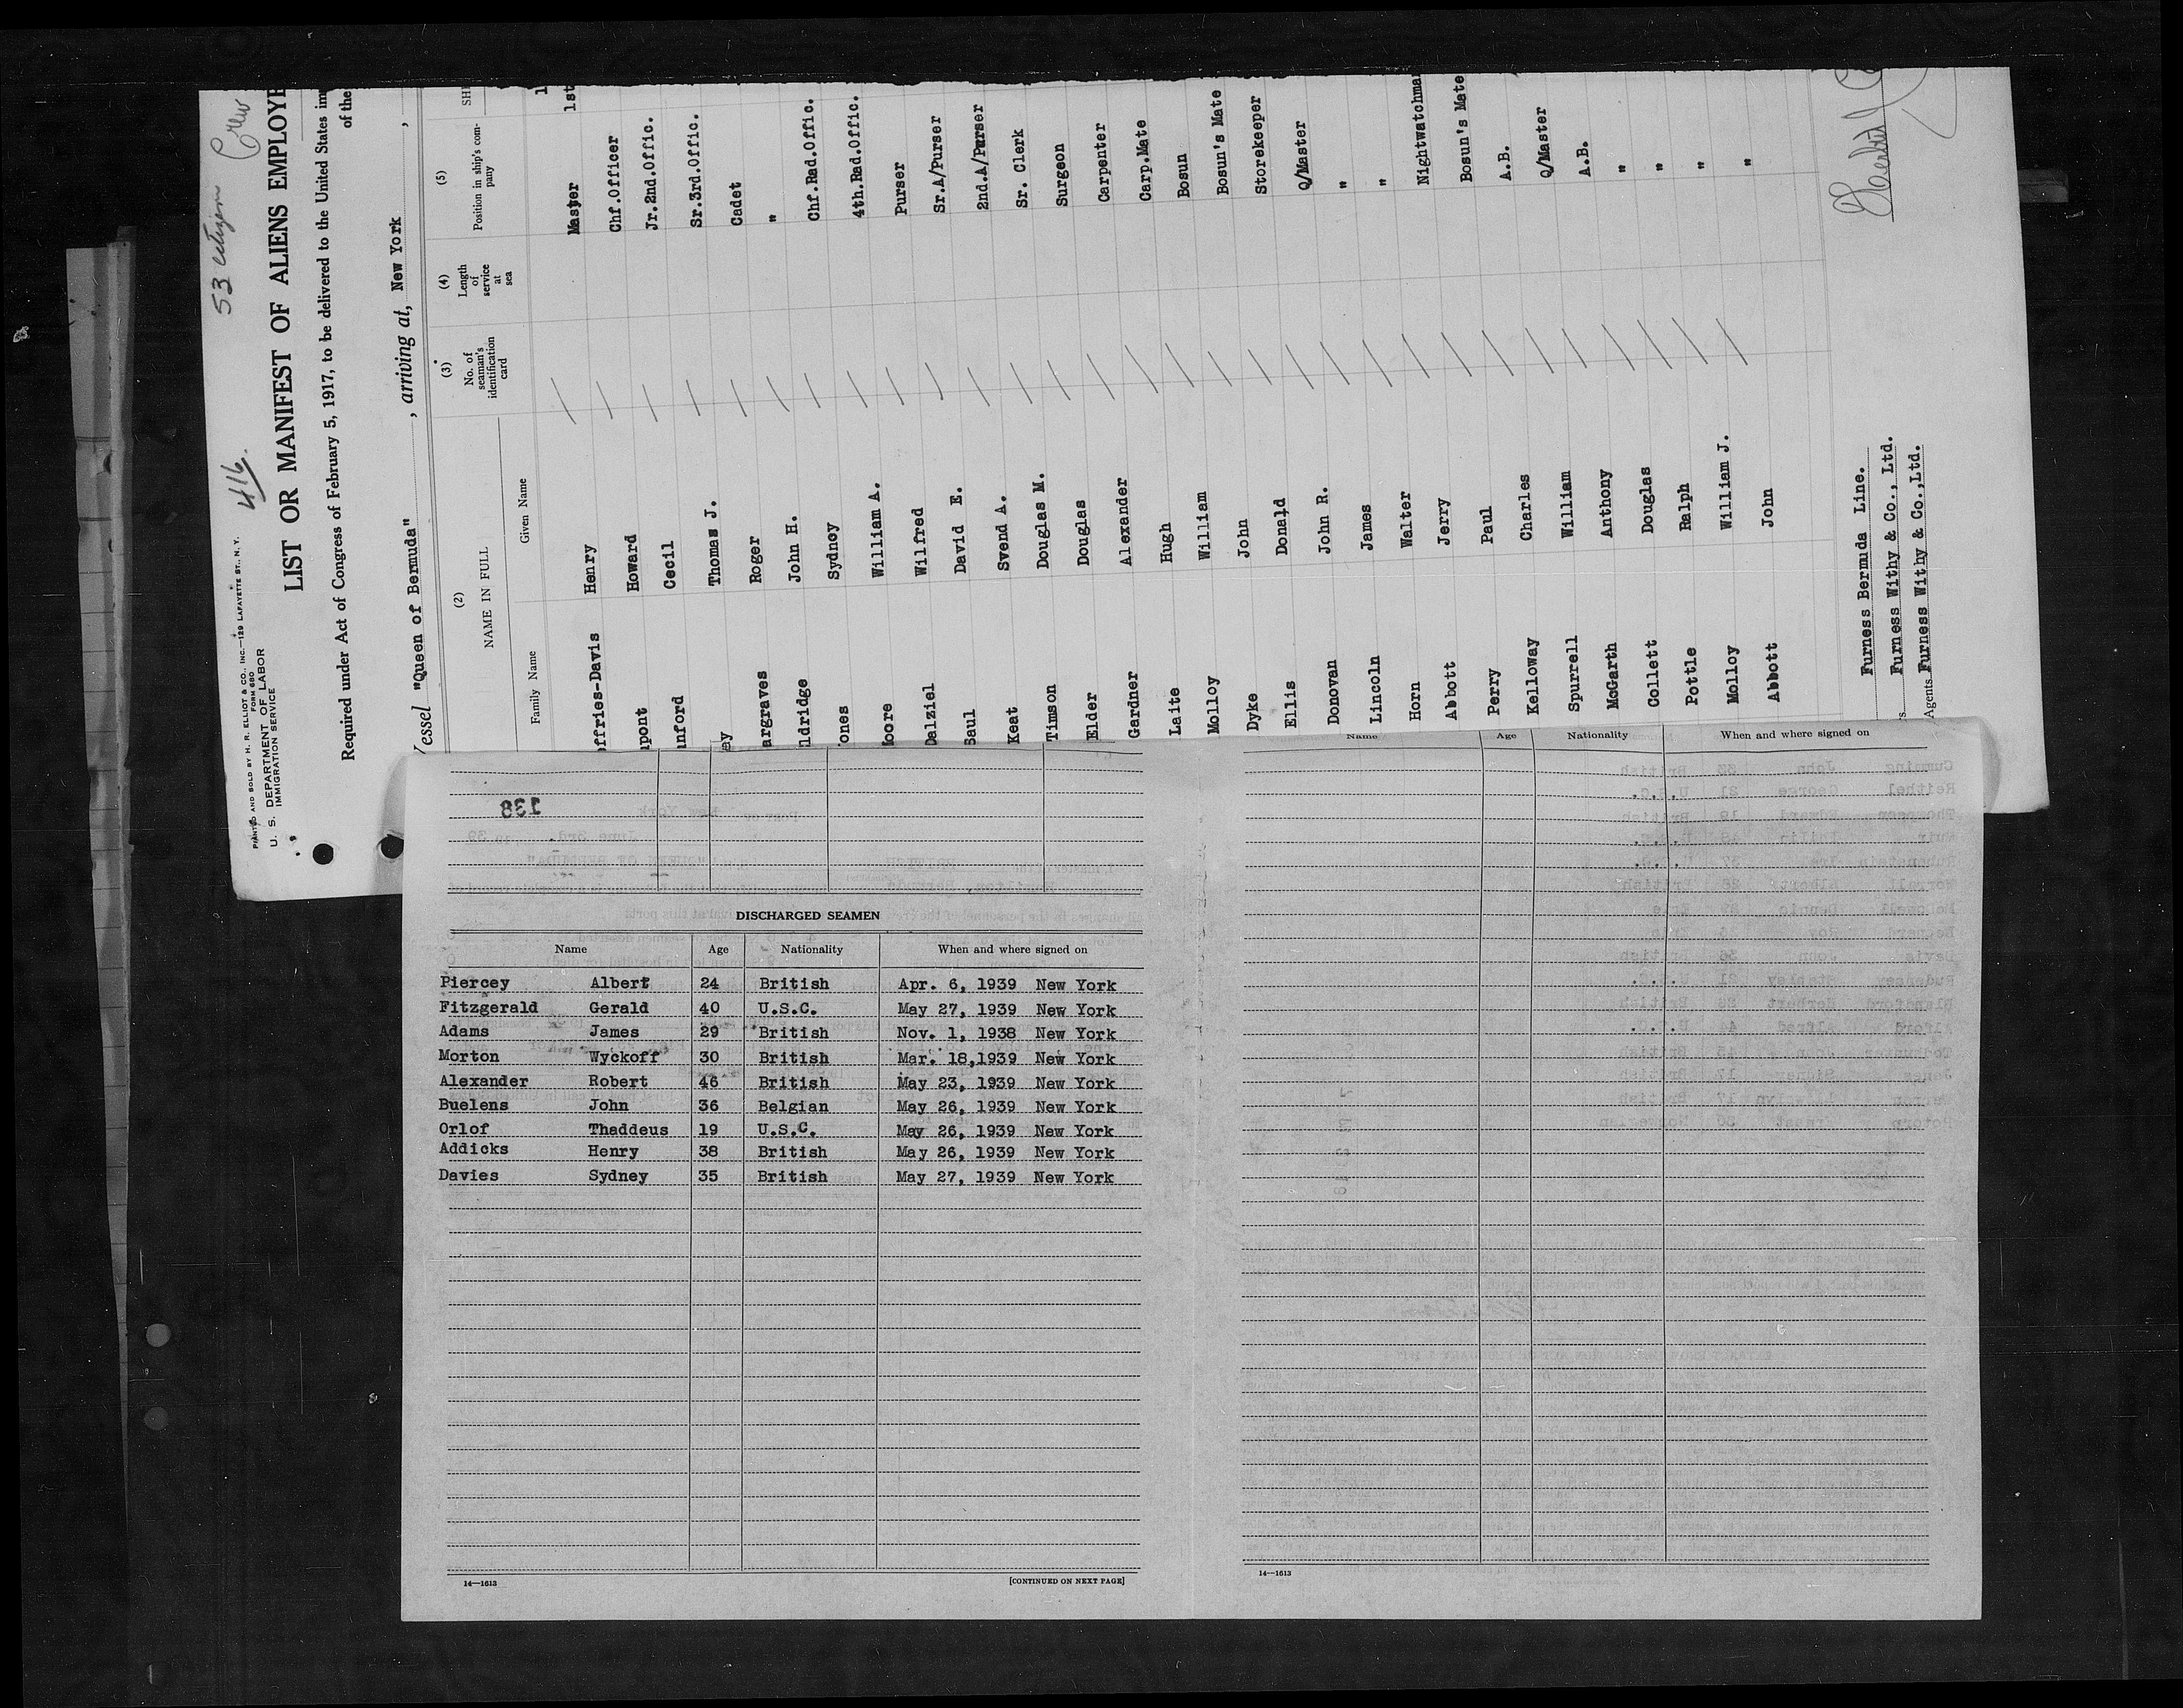 53 citizen Crew
416.
PRINTED AND SOLD BY H. R. ELLIOT & CO., INC.—129 LAFAYETTE ST., N. Y.
FORM 680
U. S. DEPARTMENT OF LABOR
IMMIGRATION SERVICE
LIST OR MANIFEST OF ALIENS EMPLOYE
Required under Act of Congress of February 5, 1917, to be delivered to the United States im
of the
Vessel "Queen of Bermuda" , arriving at, New York ,
(2) (3) (4) (5)
NAME IN FULL No. of seaman's identification card Length of service at sea Position in ship's company SHI
Family Name Given Name
1
offries-Davis Henry Master 1st
upont Howard Chf.Officer
unford Cecil Jr.2nd.Offic.
ey Thomas J. Sr.3rd.Offic.
argraves Roger Cadet
ldridge John H. "
ones Sydney Chf.Rad.Offic.
oore William A. 4th.Rad.Offic.
Dalziel Wilfred Purser
Saul David E. Sr.A/Purser
Keat Svend A. 2nd.A/Purser
Timson Douglas M. Sr. Clerk
Elder Douglas Surgeon
Gardner Alexander Carpenter
Laite Hugh Carp.Mate
Molloy William Bosun
Dyke John Bosun's Mate
Ellis Donald Storekeeper
Donovan John R. Q/Master
Lincoln James "
Horn Walter "
Abbott Jerry Nightwatchma
Perry Paul Bosun's Mate
Kelloway Charles A.B.
Spurrell William Q/Master
McGarth Anthony A.B.
Collett Douglas "
Pottle Ralph "
Molloy William J. "
Abbott John "
Furness Bermuda Line.
Furness Withy & Co., Ltd.
Agents Furness Withy & Co.,Ltd.
138
DISCHARGED SEAMEN
Name Age Nationality When and where signed on
Piercey Albert 24 British Apr. 6, 1939 New York
Fitzgerald Gerald 40 U.S.C. May 27, 1939 New York
Adams James 29 British Nov. 1, 1938 New York
Morton Wyckoff 30 British Mar. 18,1939 New York
Alexander Robert 46 British May 23, 1939 New York
Buelens John 36 Belgian May 26, 1939 New York
Orlof Thaddeus 19 U.S.C. May 26, 1939 New York
Addicks Henry 38 British May 26, 1939 New York
Davies Sydney 35 British May 27, 1939 New York
14—1613 [CONTINUED ON NEXT PAGE]
Name Age Nationality When and where signed on
14—1613